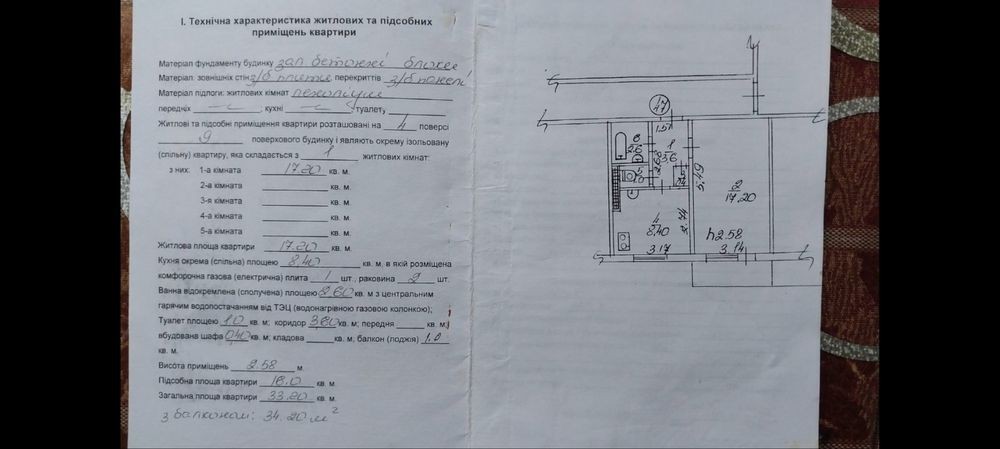 І. Технічна характеристика житлових та підсобних
приміщень квартири
Матеріал фундаменту будинку зал бетонні блоки
Матеріал: зовнішніх стін з/б плити перекриттів з/б понелі
Матеріал підлоги: житлових кімнат лінолиум
передніх ; кухні туалету
Житлові та підсобні приміщення квартири розташовані на 4 поверсі
9 поверхового будинку і являють окрему ізольовану
(спільну) квартиру, яка складається з 1 житлових кімнат:
з них: 1-а кімната 17.20 кв. м.
2-а кімната кв. м.
3-я кімната кв. м.
4-а кімната кв. м.
5-а кімната кв. м.
Житлова площа квартири 17.20 кв. м.
Кухня окрема (спільна) площею 8.40 кв. м, в якій розміщена
комфорочна газова (електрична) плита 1 шт., раковина 2 шт.
Ванна відокремлена (сполучена) площею 2.60 кв. м з центральним
гарячим водопостачанням від ТЭЦ (водонагрівною газовою колонкою);
Туалет площею 1.0 кв. м; коридор 3.60 кв. м; передня кв. м;
вбудована шафа 0.40 кв. м; кладова кв. м, балкон (лоджія) 1.0
кв. м.
Висота приміщень 2.58 м.
Підсобна площа квартири 16.0 кв. м.
Загальна площа квартири 33.20 кв. м.
з балконом: 34.20 м²
17
1.57
6
2.6
1
3.6
5.49
2
17.20
4
8.40
2.74
h 2.58
3.17
3.14